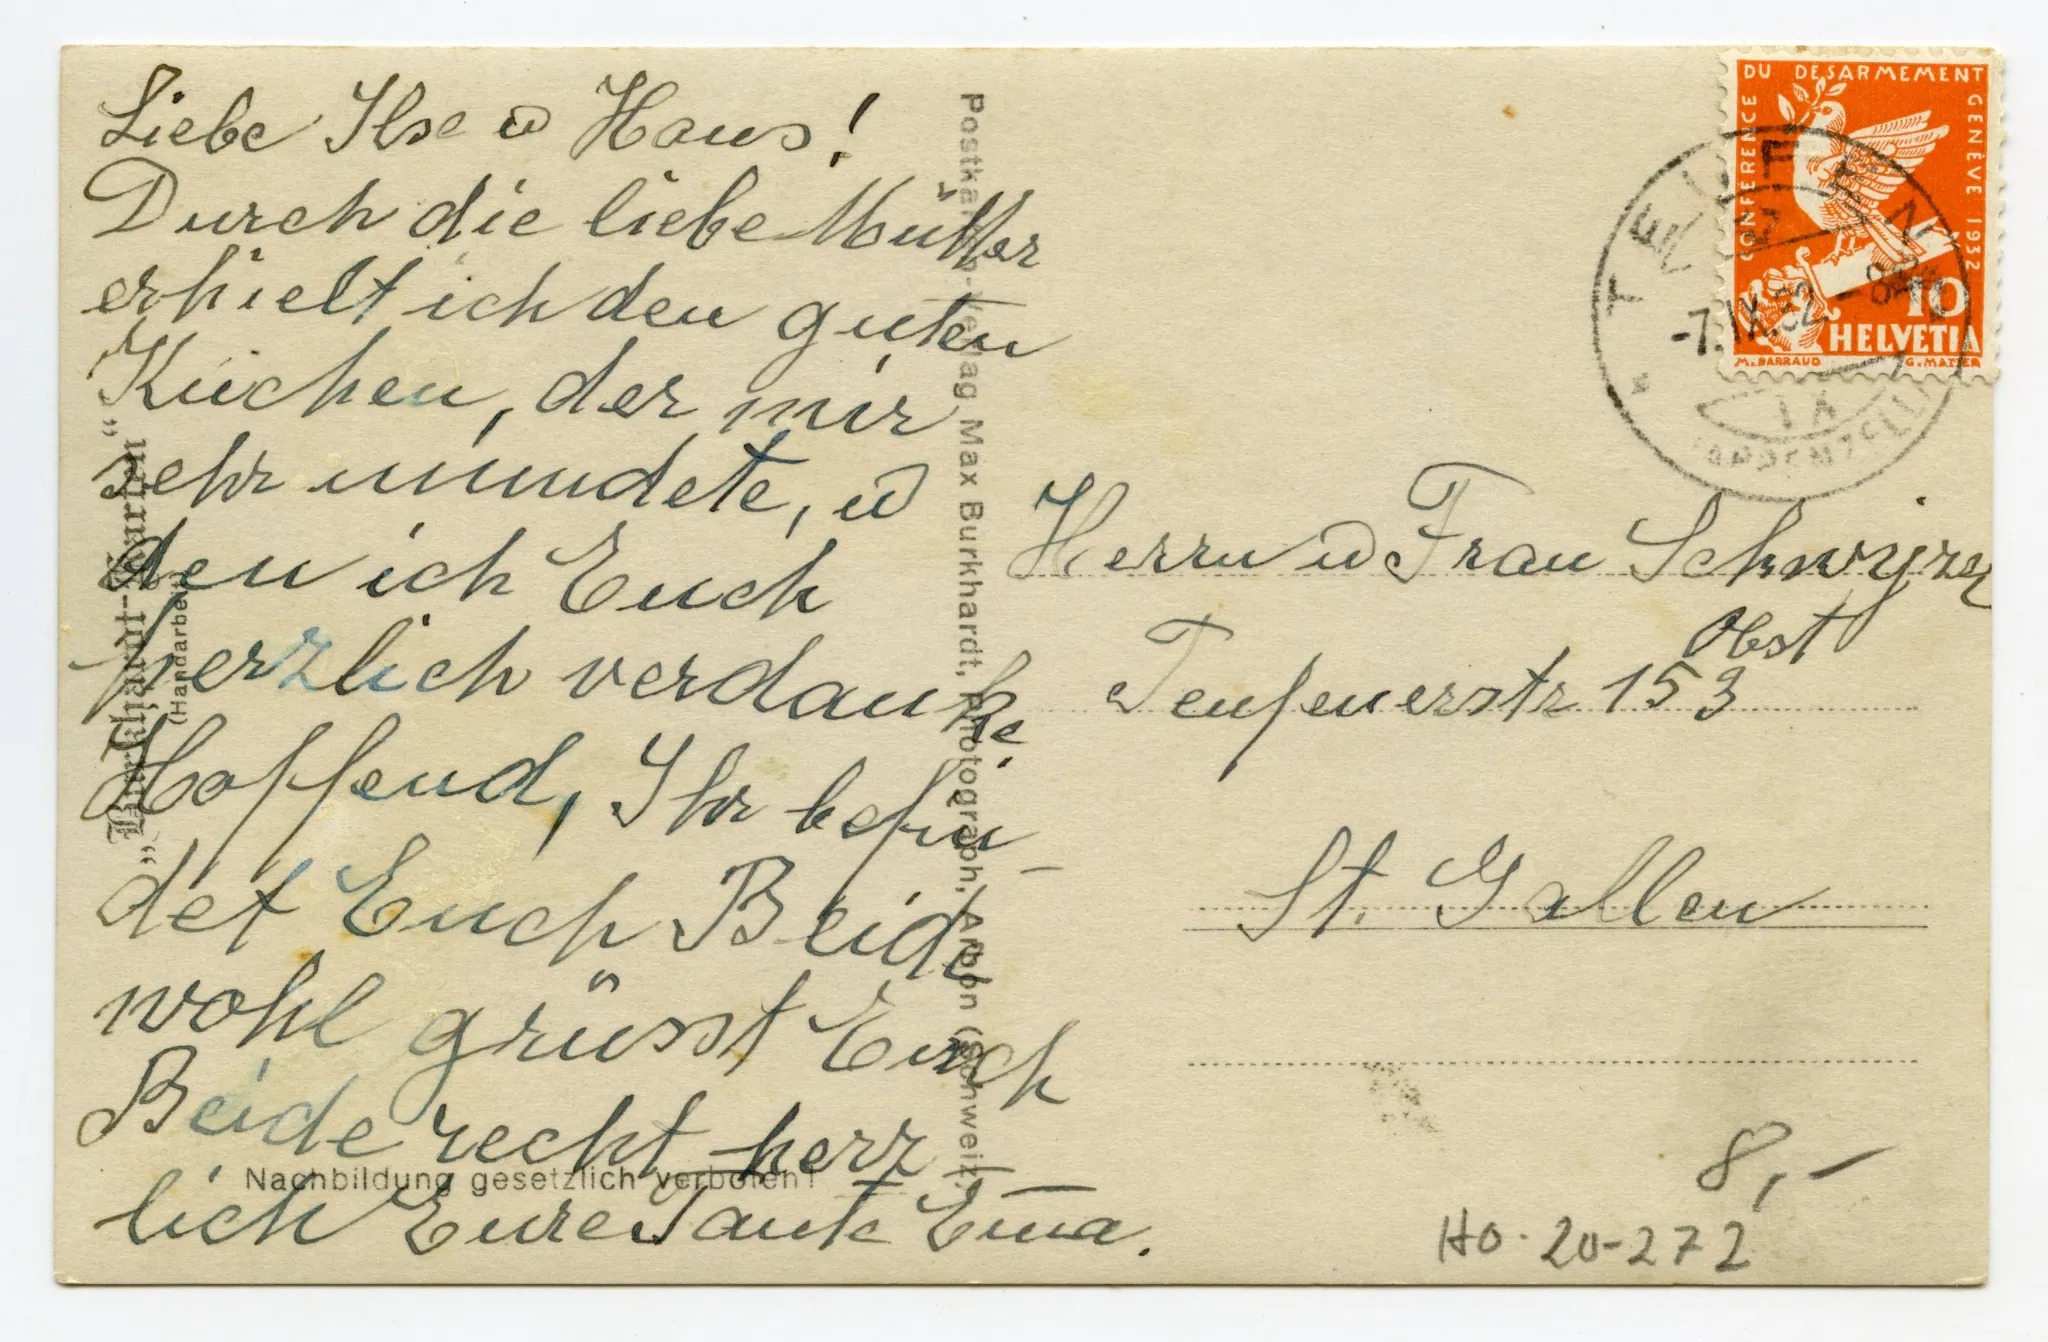 Liebe Ilse u Hans!
Durch die liebe Mutter
erhielt ich den guten
Kuchen, der mir
sehr mundete, u
den ich Euch
herzlich verdanke.
Hoffend, Ihr befin-
det Euch Beide
wohl grüsst Euch
Beide recht herz-
lich Eure Tante Ema.
Herrn u Frau Schwyzer
Obst
Teufenerstr 153
St. Gallen
„Burkhardt-Karten"
(Handarbeit)
Postkarten-Verlag Max Burkhardt, Photograph, Arbon (Schweiz)
Nachbildung gesetzlich verboten!
CONFERENCE DU DESARMEMENT GENÈVE 1932
10
HELVETIA
M. BARRAUD G. MATTER
TEUFEN
-7.IX.32.-8
(APPENZELL)
8,-
HO-20-272